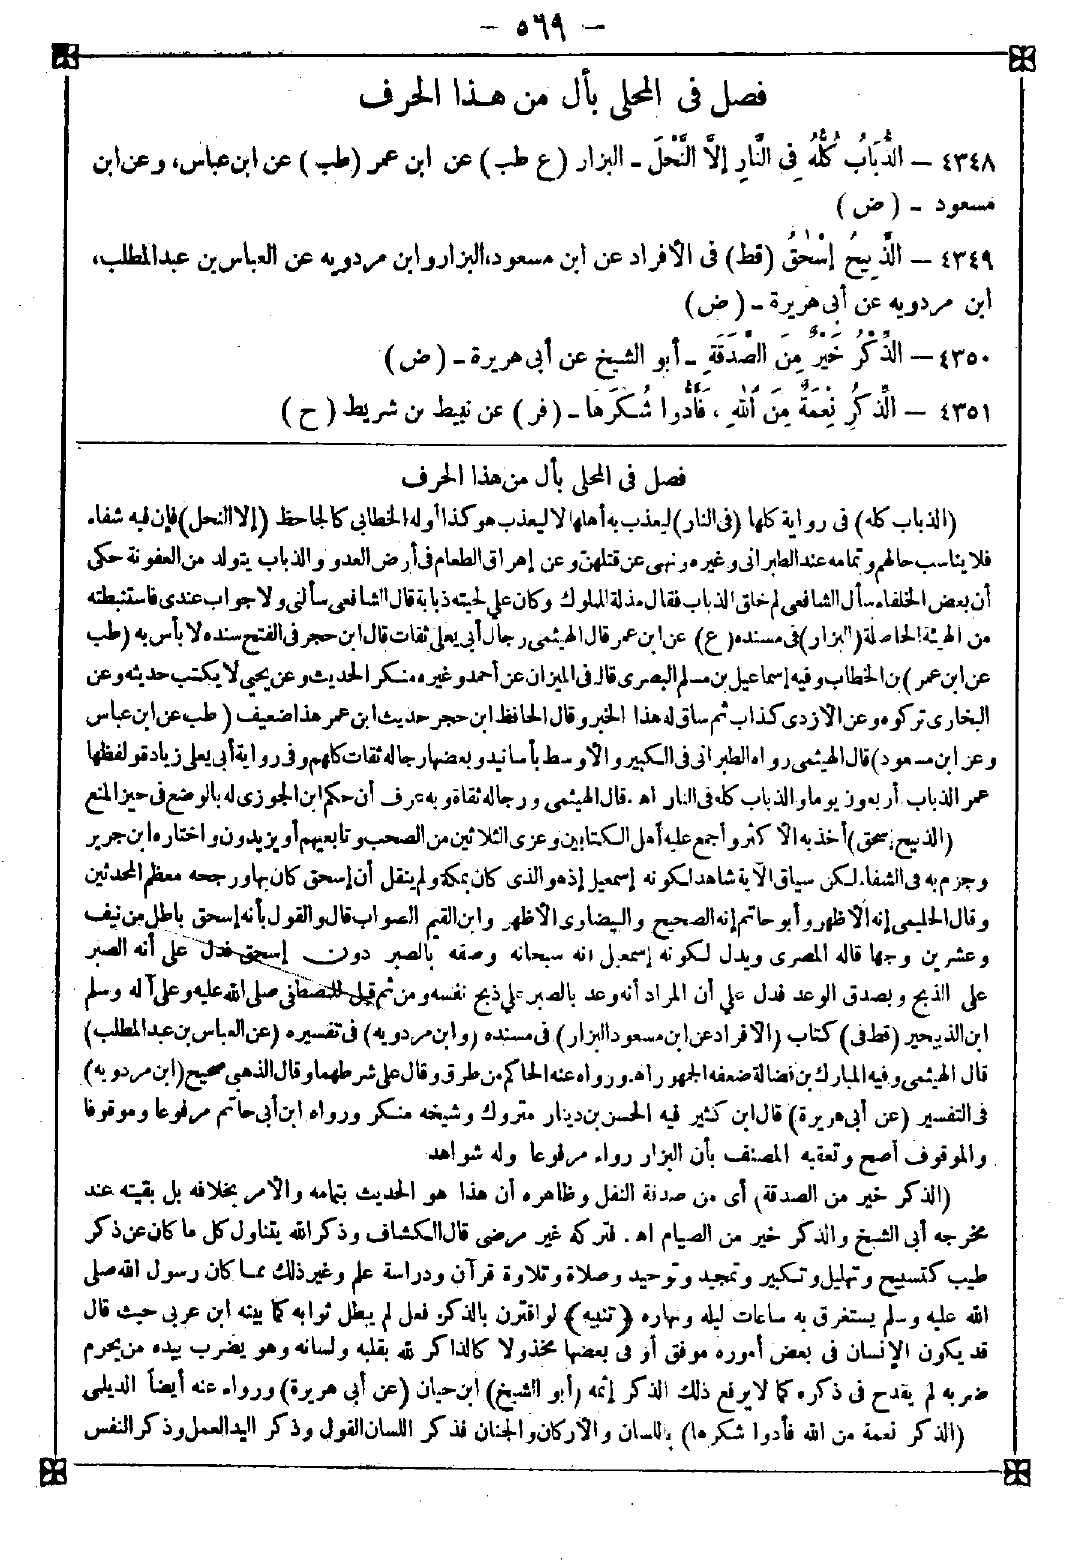 – ٥٦٩ –
فصل فى المحلى بأل من هـذا الحرف
٤٣٤٨ – الذُّبَابُ كُلُّهُ فِى النَّارِ إِلَّا النَّحْلَ - البزار (ع طب) عن ابن عمر (طب) عن ابن عباس، وعن ابن
مسعود - (ض)
٤٣٤٩ – الذَّبِيحُ إِسْحٰقُ (قط) فى الأفراد عن ابن مسعود، البزار وابن مردويه عن العباس بن عبد المطلب،
ابن مردويه عن أبى هريرة - (ض)
٤٣٥٠ – الذِّكْرُ خَيْرٌ مِنَ الصَّدَقَةِ - أبو الشيخ عن أبى هريرة - (ض)
٤٣٥١ – الذِّكْرُ نِعْمَةٌ مِنَ اللهِ، فَأَدُّوا شُكْرَهَا - (فر) عن نبيط بن شريط (ح)
فصل فى المحلى بأل من هذا الحرف
(الذباب كله) فى رواية كلها (فى النار) ليعذب به أهلها لا ليعذب هو كذا أوله الخطابى كالجاحظ (إلا النحل) فإن فيه شفاء
فلا يناسب حالهم وتمامه عند الطبرانى وغيره ونهى عن قتلهن وعن إهراق الطعام فى أرض العدو والذباب يتولد من العفونة حكى
أن بعض الخلفاء سأل الشافعى لم خلق الذباب فقال مذلة الملوك وكان على لحيته ذبابة قال الشافعى سألنى ولا جواب عندى فاستنبطته
من الهيئة الحاصلة (البزار) فى مسنده (ع) عن ابن عمر قال الهيثمى رجال أبى يعلى ثقات قال ابن حجر فى الفتح سنده لا بأس به (طب
عن ابن عمر) بن الخطاب وفيه إسماعيل بن مسلم البصرى قال فى الميزان عن أحمد وغيره منكر الحديث وعن يحيى لا يكتب حديثه وعن
البخارى تركوه وعن الأزدى كذاب ثم ساق له هذا الخبر وقال الحافظ ابن حجر حديث ابن عمر هذا ضعيف (طب عن ابن عباس
وعن ابن مسعود) قال الهيثمى رواه الطبرانى فى الكبير والأوسط بأسانيد وبعضها رجاله ثقات كلهم وفى رواية أبى يعلى زيادة ولفظها
عمر الذباب أربعون يوما والذباب كله فى النار اه. قال الهيثمى ورجاله ثقاة وبه عرف أن حكم ابن الجوزى له بالوضع فى حيز المنع
(الذبيح إسحق) أخذ به الأكثر وأجمع عليه أهل الكتابين وعزى الثلاثين من الصحب وتابعيهم أو يزيدون واختاره ابن جرير
وجزم به فى الشفاء لكن سياق الآية شاهد لكونه إسمعيل إذ هو الذى كان بمكة ولم ينقل أن إسحق كان بها ورجحه معظم المحدثين
وقال الحليمى إنه الأظهر وأبو حاتم إنه الصحيح والبيضاوى الأظهر وابن القيم الصواب قال والقول بأنه إسحق باطل من نيف
وعشرين وجها قاله المصرى ويدل لكونه إسمعيل أنه سبحانه وصفه بالصبر دون إسحق فدل على أنه الصبر
على الذبح وبصدق الوعد فدل على أن المراد أنه وعد بالصبر على ذبح نفسه ومن ثم قيل للمصطفى صلى الله عليه وعلى آله وسلم
ابن الذبيحين (قط فى) كتاب (الأفراد عن ابن مسعود البزار) فى مسنده (وابن مردويه) فى تفسيره (عن العباس بن عبد المطلب)
قال الهيثمى وفيه المبارك بن فضالة ضعفه الجمهور اه. ورواه عنه الحاكم من طرق وقال على شرطهما وقال الذهبى صحيح (ابن مردويه)
فى التفسير (عن أبى هريرة) قال ابن كثير فيه الحسن بن دينار متروك وشيخه منكر ورواه ابن أبى حاتم مرفوعا وموقوفا
والموقوف أصح وتعقبه المصنف بأن البزار رواه مرفوعا وله شواهد
(الذكر خير من الصدقة) أى من صدقة النفل وظاهره أن هذا هو الحديث بتمامه والأمر بخلافه بل بقيته عند
مخرجه أبى الشيخ والذكر خير من الصيام اه. فتركه غير مرضى قال الكشاف وذكر الله يتناول كل ما كان عن ذكر
طيب كتسبيح وتهليل وتكبير وتمجيد وتوحيد وصلاة وتلاوة قرآن ودراسة علم وغير ذلك مما كان رسول الله صلى
الله عليه وسلم يستغرق به ساعات ليله ونهاره (تنبيه) لو اقترن بالذكر فعل لم يبطل ثوابه كما بينه ابن عربى حيث قال
قد يكون الإنسان فى بعض أموره موفق أو فى بعضها مخذولا كالذاكر لله بقلبه ولسانه وهو يضرب بيده من يحرم
ضربه لم يقدح فى ذكره كما لا يرفع ذلك الذكر إثمه (أبو الشيخ) ابن حيان (عن أبى هريرة) ورواه عنه أيضاً الديلى
(الذكر نعمة من الله فأدوا شكرها) باللسان والأركان والجنان فذكر اللسان القول وذكر اليد العمل وذكر النفس